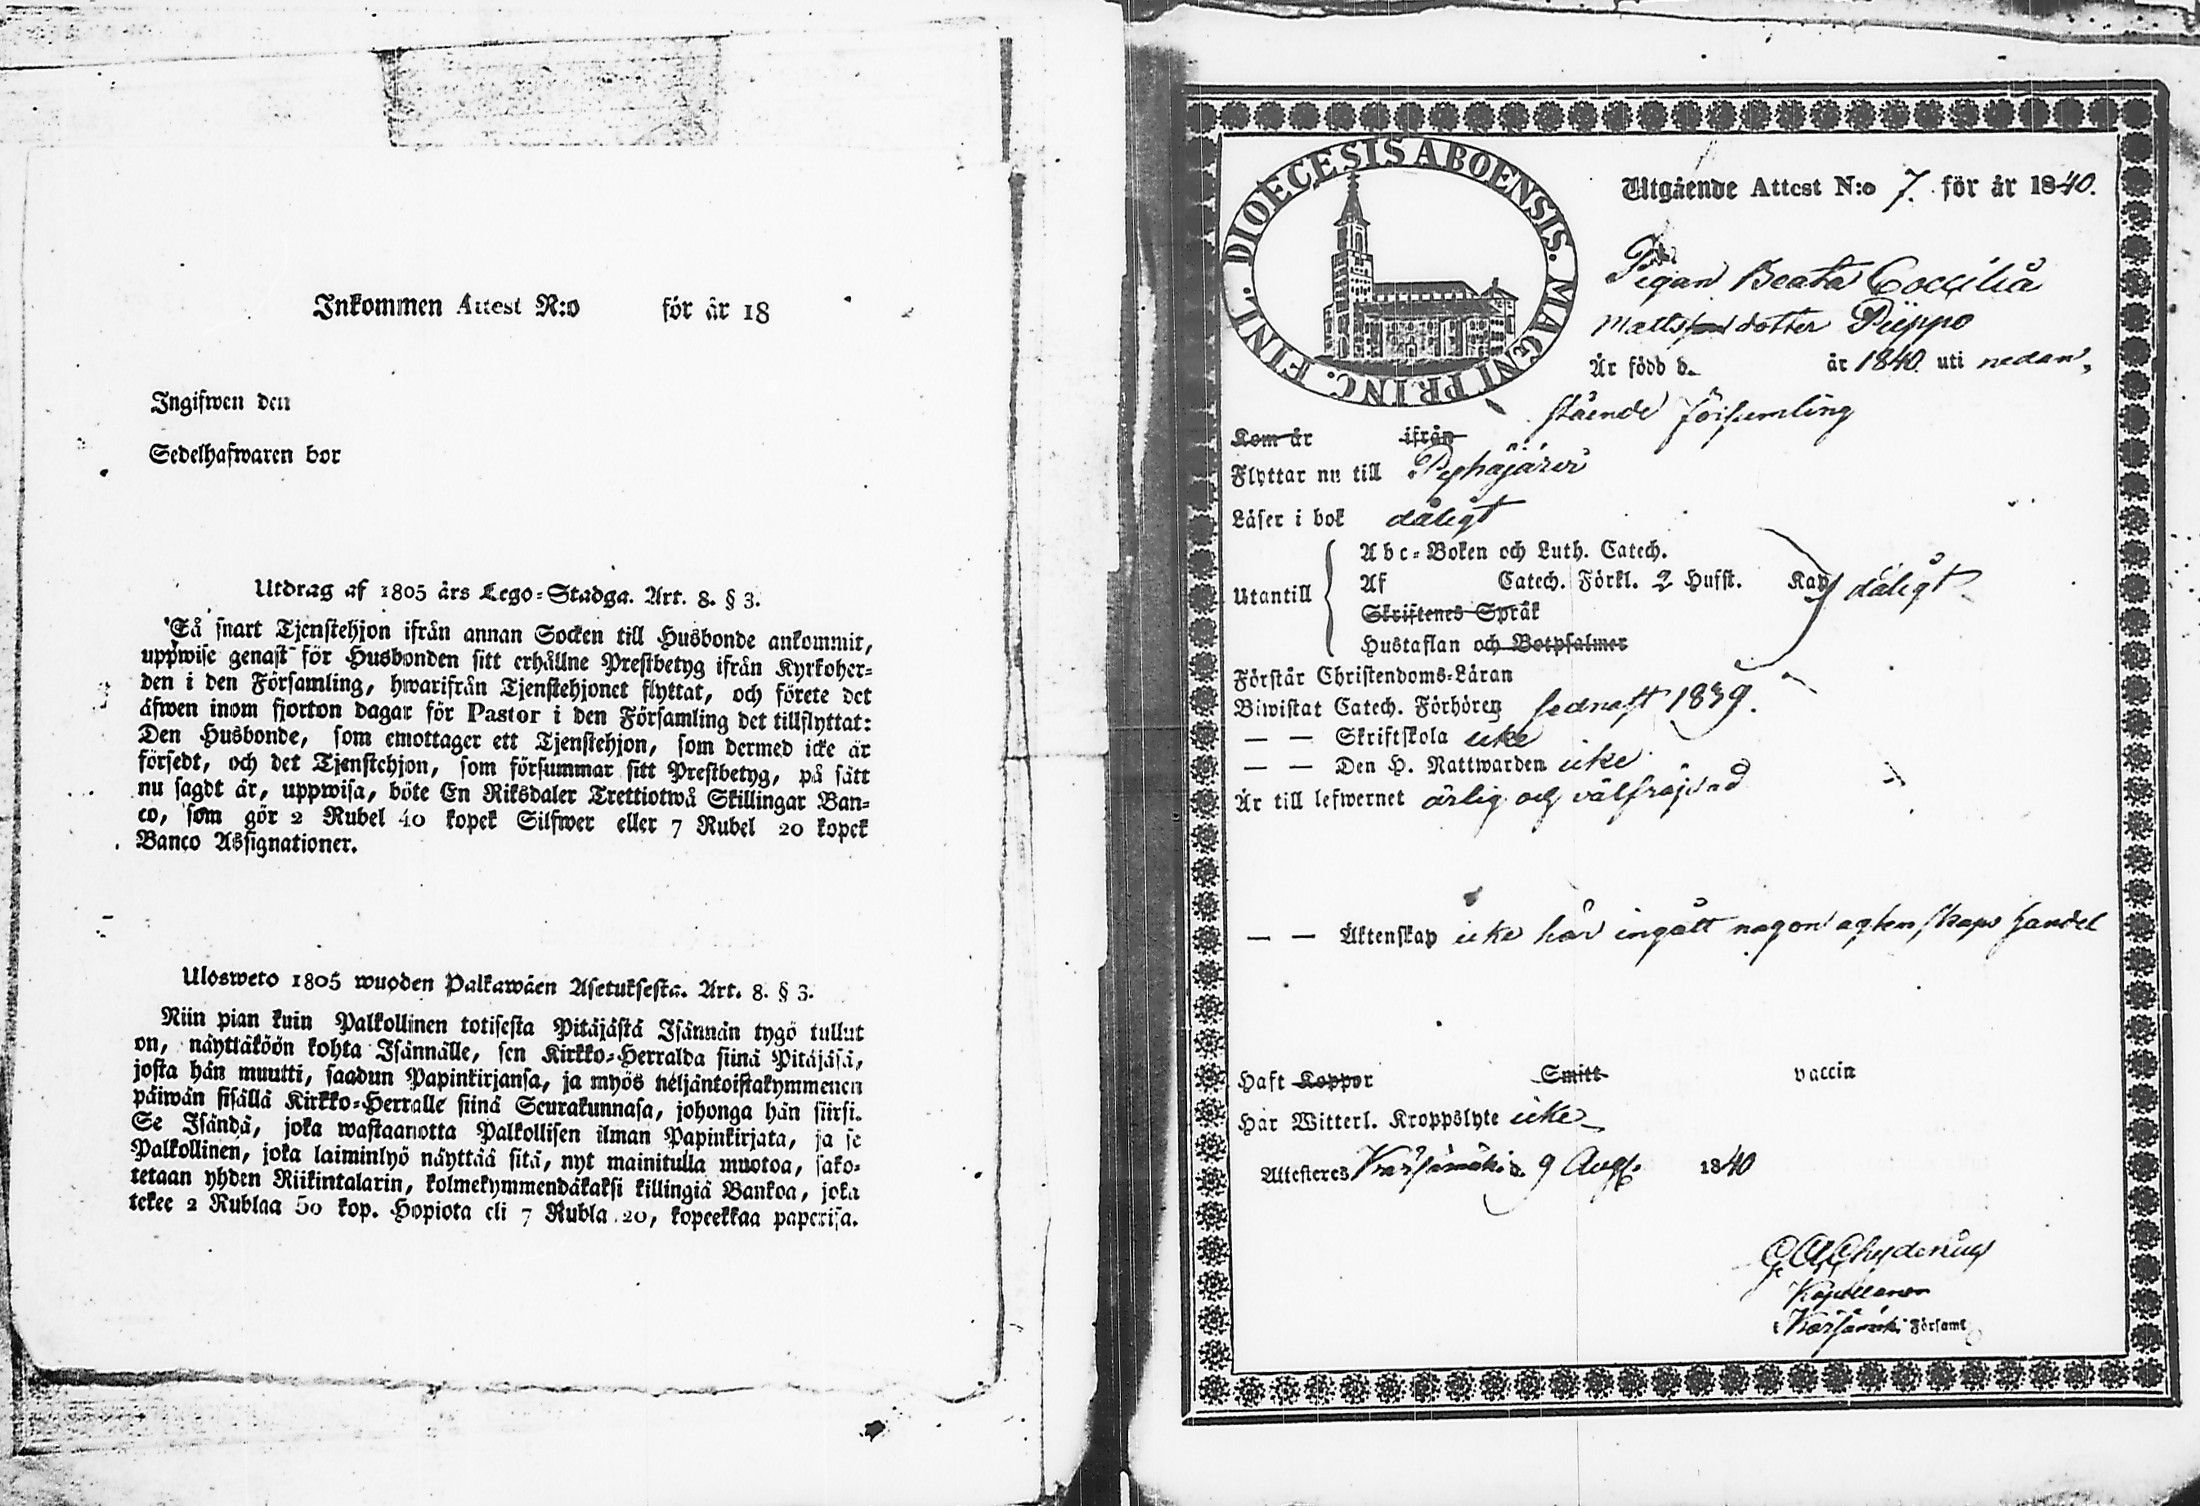 Inkommen Attest N:o för år 18
Ingifwen den
Sedelhafwaren bor
Utdrag af 1805 års Lego-Stadga. Art. 8. § 3.
Så snart Tjenstehjon ifrån annan Socken till Husbonde ankommit,
uppwise genast för Husbonden sitt erhållne Prestbetyg ifrån Kyrkoher-
den i den Församling, hwarifrån Tjenstehjonet flyttat, och förete det
äfwen inom fjorton dagar för Pastor i den Församling det tillflyttat:
Den Husbonde, som emottager ett Tjenstehjon, som dermed icke är
försedt, och det Tjenstehjon, som försummar sitt Prestbetyg, på sätt
nu sagdt är, uppwisa, böte En Riksdaler Trettiotwå Skillingar Ban-
co, som gör 2 Rubel 40 kopek Silfwer eller 7 Rubel 20 kopek
Banco Assignationer.
Ulosweto 1805 wuoden Palkawäen Asetuksesta. Art. 8. § 3.
Niin pian kuin Palkollinen toisesta Pitäjästä Isännän tygö tullut
on, näyttäköön kohta Isännälle, sen Kirkko-Herralda siinä Pitäjäsä,
josta hän muutti, saadun Papinkirjansa, ja myös neljäntoistakymmenen
päiwän sisällä Kirkko-Herralle siinä Seurakunnasa, johonga hän siirsi.
Se Isändä, joka wastaanotta Palkollisen ilman Papinkirjata, ja se
Palkollinen, joka laiminlyö näyttää sitä, nyt mainitulla muotoa, sako-
tetaan yhden Riikintalarin, kolmekymmendäkaksi killingiä Bankoa, joka
tekee 2 Rublaa 50 kop. Hopiota eli 7 Rubla 20, kopeekkaa paperisa.
DIOECESIS ABOENSIS. MAGNI PRINC. FINL.
Utgående Attest N:o 7. för år 1840.
Pigan Beata Coecilia
Matts dotter Piippo
Är född d. år 1840. uti nedan,
stående församling
Kom år ifrån
Flyttar nu till Pyhäjärvi
Läser i bok dåligt
Abc-Boken och Luth. Catech.
Utantill Af Catech. Förkl. 2 Hufst. Kap dåligt
Skriftenes Språk
Hustaflan och Botpsalmer
Förstår Christendoms-Läran
Biwistat Catech. Förhören sednast 1839.
— — Skriftskola icke
— — Den H. Nattwarden icke
Är till lefwernet ärlig och välfräjdad
— — Äktenskap icke har ingått någon agtenskaps handel
Haft Koppor Smitt vaccin
Har Witterl. Kroppslyte icke
Attesteres Kärsämäki d. 9 Aug. 1840
Chydenius
Kapellanen
i Kärsämäki Församl